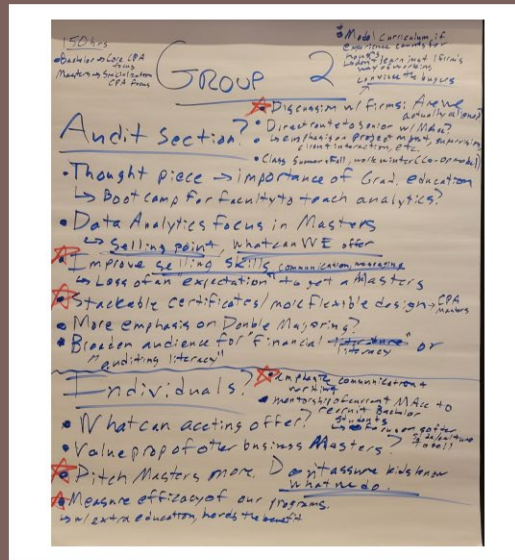 150 hrs
• Bachelor → Core CPA
focus
Masters → Specialization
CPA focus
GROUP 2
• Model Curriculum, if
experience counts for
hours?
↳ don't learn just 1 firm's
way of working
↳ convince the buyers
• Discussion w/ firms: Are we
actually aligned?
• Direct route to senior w/ MAcc?
↳ emphasis on project mgmt, supervising,
client interaction, etc.
• Class Summer & Fall, work winter (Co-op model)
Audit Section?
• Thought piece → importance of Grad. education
↳ Boot camp for faculty to teach analytics?
• Data Analytics focus in Masters
↳ Selling point, what can WE offer
• Improve selling skills communication,
↳ "Loss of an expectation" to get a Masters
• Stackable certificates/more flexible design → CPA
Masters
• More emphasis on Double Majoring?
• Broaden audience for "financial literacy" or
"auditing literacy"
Individuals?
• emphasize communication +
writing
• mentorship of current MAcc to
recruit Bachelor
students
• What can accting offer?
• Value prop of other business Masters?
• Pitch Masters more. Don't assure kids know
what we do.
• Measure efficacy of our programs.
↳ w/ extra education, here's the benefit